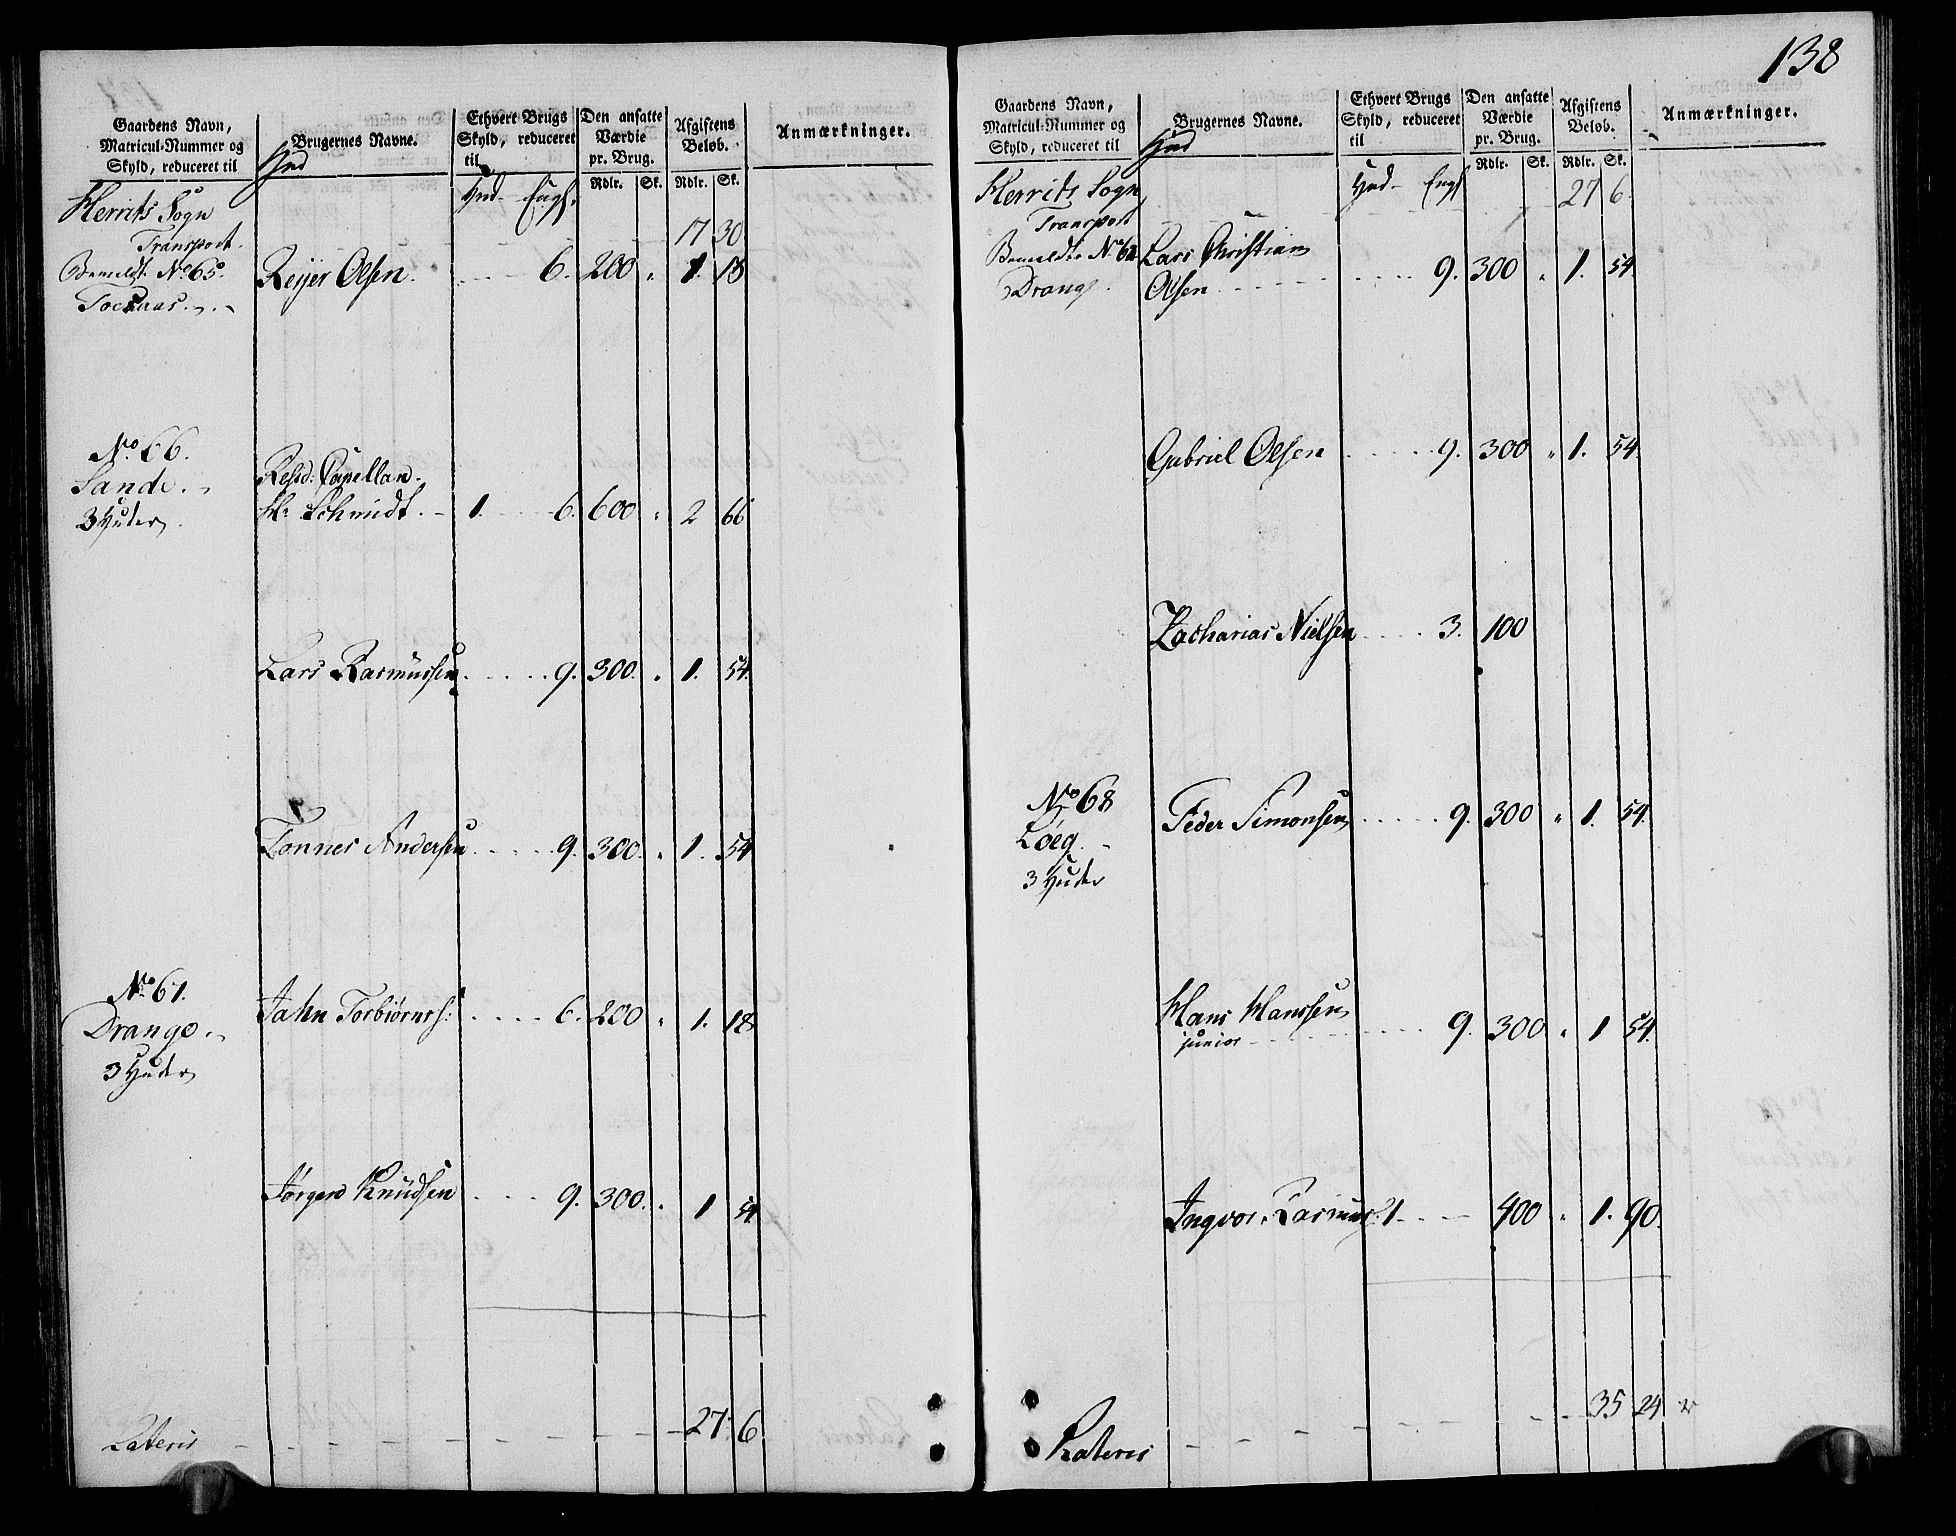 138
Gaardens Navn, Matricul-Nummer og Skyld, reduceret til
Hud
Brugernes Navne.
Ethvert Brugs Skyld, reduceret til
Den ansatte Værdie pr. Brug.
Afgiftens Beløb.
Anmærkninger.
Hud - Eng. Rdlr. Sk. Rdlr. Sk.
Herrits Sogn
Transport. 17 30
No 65. Reijer Olsen. 6. 200 " 1. 18
No 66. Resid: Capellan
Sande. Hr Schmidt. 1. 6. 600. " 2 66
3 Huder
Lars Rasmussen 9. 300. " 1. 54.
Tønnes Andersen 9. 300. " 1. 54
No 67. Jahn Torbiørns: 6. 200 " 1. 18
Drange
3 Huder
Jørgen Knudsen 9. 300. " 1 54
Lateris 27 6
Gaardens Navn, Matricul-Nummer og Skyld, reduceret til
Hud
Brugernes Navne.
Ethvert Brugs Skyld, reduceret til
Den ansatte Værdie pr. Brug.
Afgiftens Beløb.
Anmærkninger.
Hud - Eng. Rdlr. Sk. Rdlr. Sk.
Herrits Sogn 27 6.
Transport
Lars Christian
Drange. Olsen 9. 300 " 1. 54
Gabriel Olsen 9. 300 " 1. 54.
Zacharias Nielsen 3. 100
No 68 Peder Simonsen 9. 300 " 1. 54.
Løeg.
3 Huder
Hans Hanssen
junior 9. 300 " 1 54.
Ingvor Rasmus: 1 400 " 1. 90.
Lateris 35 24